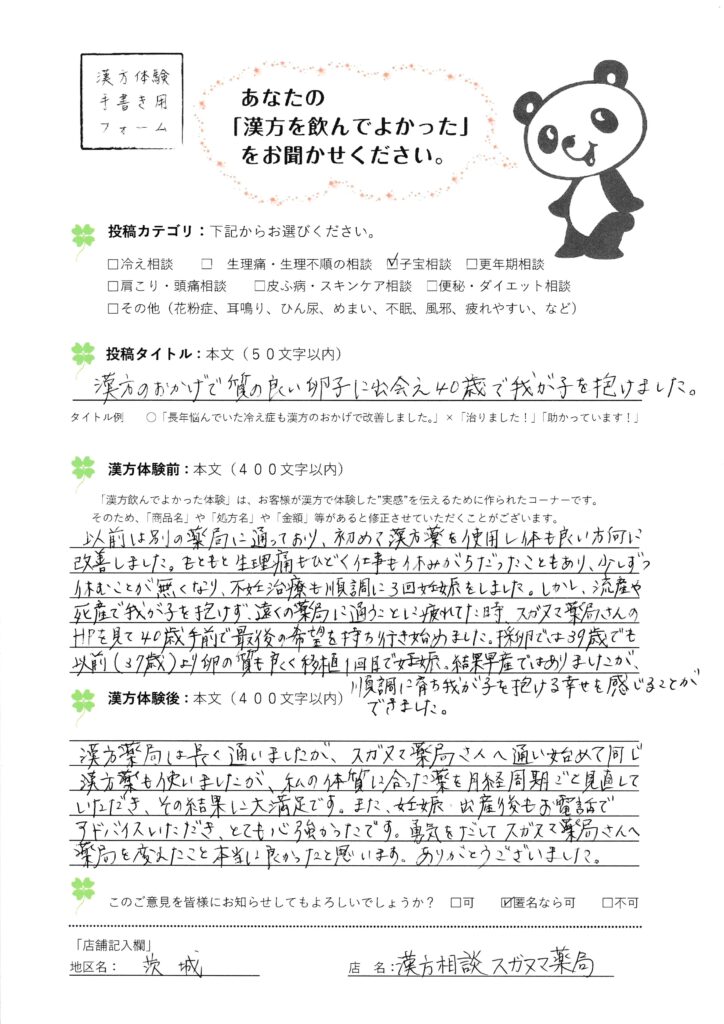 漢方体験
手書き用
フォーム
あなたの
「漢方を飲んでよかった」
をお聞かせください。
投稿カテゴリ：下記からお選びください。
□冷え相談 □ 生理痛・生理不順の相談 ☑子宝相談 □更年期相談
□肩こり・頭痛相談 □皮ふ病・スキンケア相談 □便秘・ダイエット相談
□その他（花粉症、耳鳴り、ひん尿、めまい、不眠、風邪、疲れやすい、など）
投稿タイトル：本文（５０文字以内）
漢方のおかげで質の良い卵子に出会え40歳で我が子を抱けました。
タイトル例 ○「長年悩んでいた冷え症も漢方のおかげで改善しました。」×「治りました！」「助かっています！」
漢方体験前：本文（４００文字以内）
「漢方飲んでよかった体験」は、お客様が漢方で体験した"実感"を伝えるために作られたコーナーです。
そのため、「商品名」や「処方名」や「金額」等があると修正させていただくことがございます。
以前は別の薬局に通っており、初めて漢方薬を使用し体も良い方向に
改善しました。もともと生理痛もひどく仕事も休みがちだったこともあり、少しずつ
休むことが無くなり、不妊治療も順調に3回妊娠をしました。しかし、流産や
死産で我が子を抱けず、遠くの薬局に通うことに疲れてた時、スガヌマ薬局さんの
HPを見て40歳手前で最後の希望を持ち行き始めました。採卵では39歳でも
以前(37歳)より卵の質も良く移植1回目で妊娠。結果早産ではありましたが、
順調に育ち我が子を抱ける幸せを感じることが
できました。
漢方体験後：本文（４００文字以内）
漢方薬局は長く通いましたが、スガヌマ薬局さんへ通い始めて同じ
漢方薬も使いましたが、私の体質に合った薬を月経周期ごと見直して
いただき、その結果に大満足です。また、妊娠・出産後もお電話で
アドバイスいただき、とても心強かったです。勇気をだしてスガヌマ薬局さんへ
薬局を変えたこと本当に良かったと思います。ありがとうございました。
このご意見を皆様にお知らせしてもよろしいでしょうか？ □可 ☑匿名なら可 □不可
「店舗記入欄」
地区名： 茨城 店 名：漢方相談 スガヌマ薬局